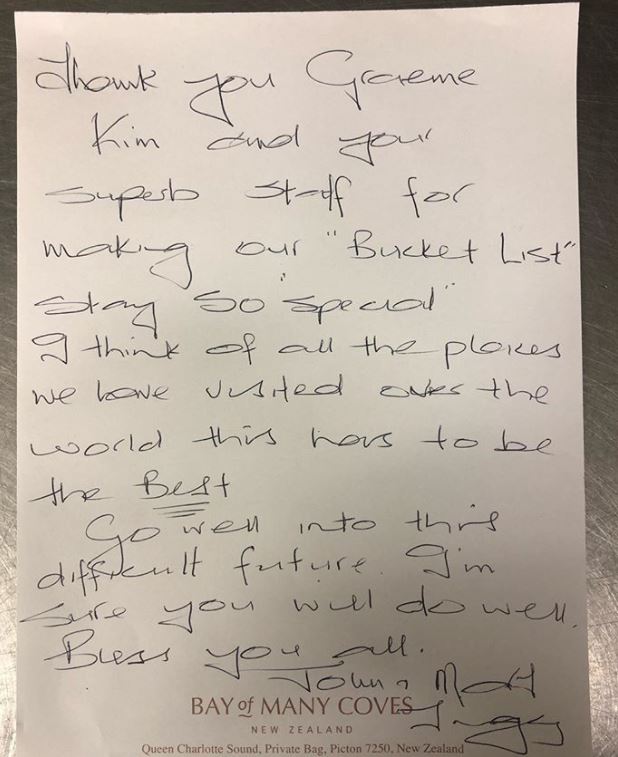 Thank you Graeme
Kim and your
superb staff for
making our "Bucket List"
stay so "special"
I think of all the places
we have visited over the
world this has to be
the Best
Go well into this
difficult future. I'm
sure you will do well.
Bless you all.
John &
BAY of MANY COVES
NEW ZEALAND
Queen Charlotte Sound, Private Bag, Picton 7250, New Zealand